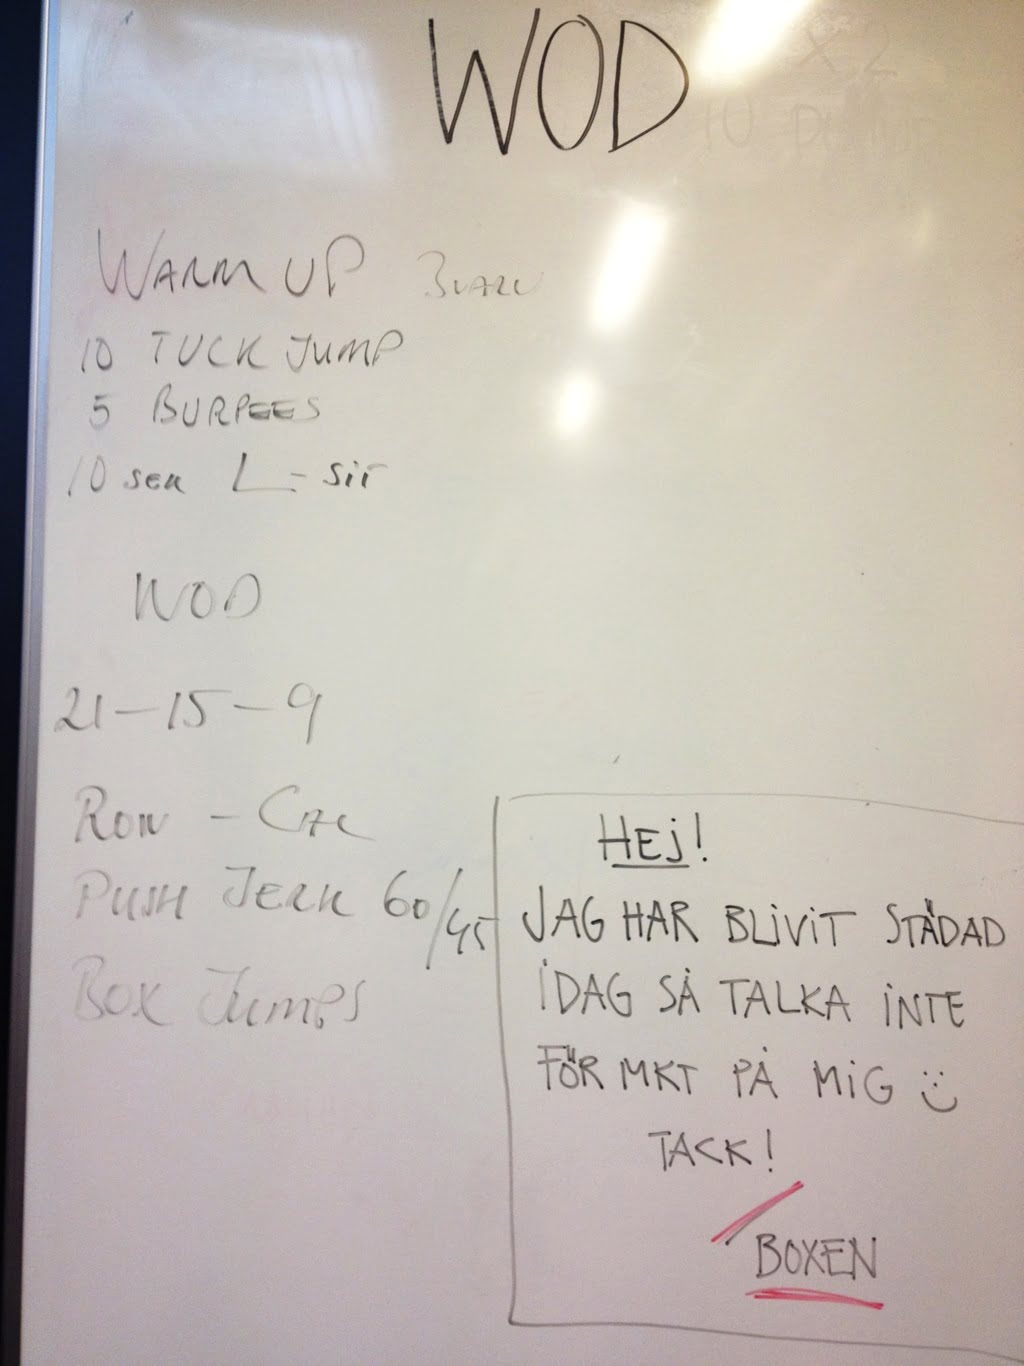 WOD
WARM UP 3 VARV
10 TUCK JUMP
5 BURPEES
10 sek L-sit
WOD
21-15-9
ROW - CAL
PUSH JERK 60/45
BOX JUMPS
HEJ!
JAG HAR BLIVIT STÄDAD
IDAG SÅ TALKA INTE
FÖR MKT PÅ MIG :)
TACK!
/BOXEN